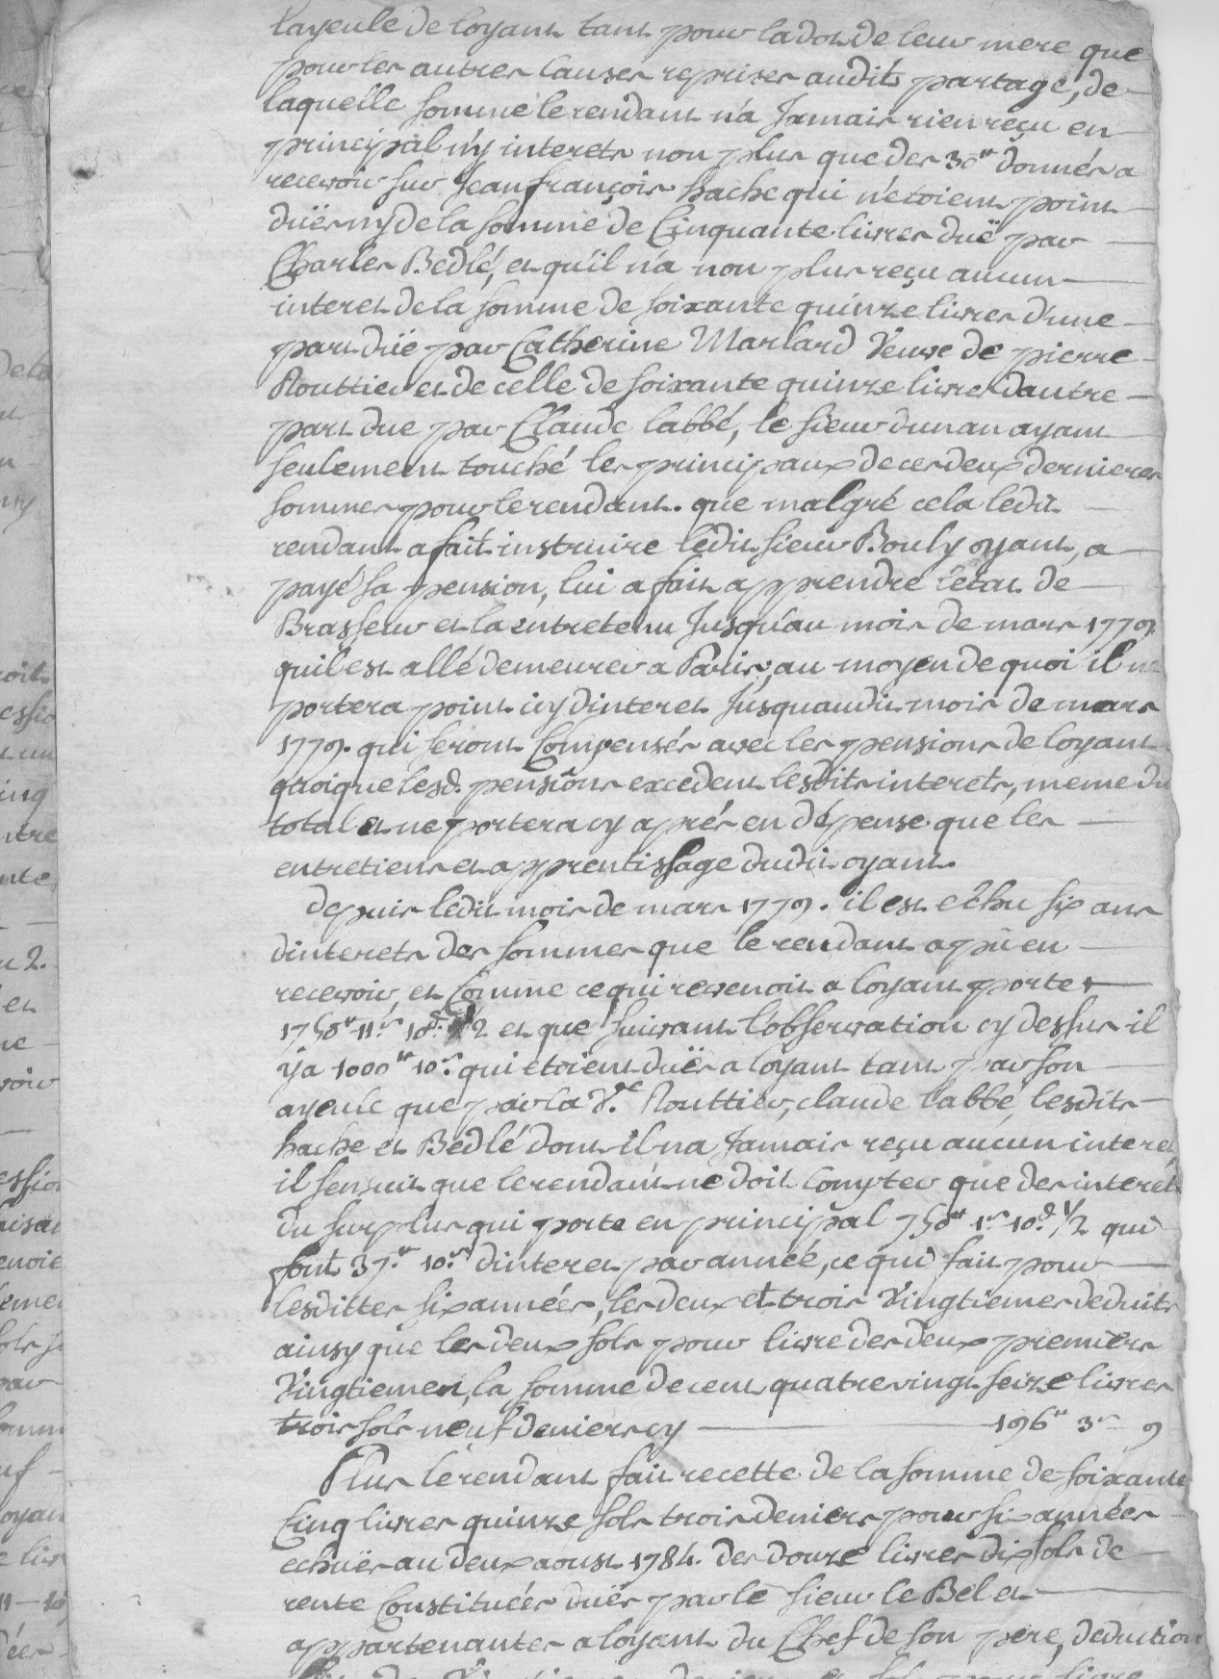 layeule de loyant tant pour la dot de leur mere que
pour les autres causes reprises audit partage, de
laquelle somme le rendant n'a Jamais rien reçu en
principal ny interets non plus que des 30# donnés a
recevoir sur Jean françois hache qui n'etoient point
duës ny de la somme de Cinquante livres duë par
Charles Bedlé, et qu'il n'a non plus reçu aucun
interet de la somme de soixante quinze livres dune
part düe par Catherine Marlard Veuve de pierre
Routtier et de celle de soixante quinze livres dautre
part due par Claude labbé, le sieur dunan ayant
seulement touché les principaux de ces deux dernieres
sommes pour le rendant. que malgré cela ledit
rendant a fait instruire ledit sieur Bouly oyant, a
payé sa pension, lui a fait apprendre l'etat de
Brasseur et la entretenu Jusqu'au mois de mars 1779.
quil est allé demeurer a Paris, au moyen de quoi il ne
portera point icy dinteret Jusquaudit mois de mars
1779. qui seront Compensés avec les pensions de loyant
quoique lesd. pensions excedent lesdits interets, meme du
total et ne portera cy aprés en dépense que les
entretiens et apprentissage dudit oyant.
depuis ledit mois de mars 1779. il est echu six ans
dinterets des sommes que le rendant a pû en
recevoir, et Comme ce qui revenoit a loyant porte
1750# 11s 10d 1/2 et que suivant l'observation cy dessus il
y a 1000# 10s qui etoient duës a loyant tant par son
ayeule que par la d.e Routtier, claude labbé, lesdits
hache et Bedlé dont il na Jamais reçu aucun interet,
il sensuit que le rendant ne doit Compter que des interets
du surplus qui porte en principal 750# 1s 10d 1/2 qui
font 37# 10s dinteret par année, ce qui fait pour
lesdittes six années, les deux et trois Vingtiemes deduits
ainsy que les deux sols pour livre des deux premiers
Vingtiemes, la somme de cent quatre vingt seize livres
trois sols neuf deniers cy — 196# 3s 9
Plus le rendant fait recette de la somme de soixante
Cinq livres quinze sols trois deniers pour six années
echuës au deux aoust 1784. des douze livres dix sols de
rente Constituées duës par le sieur le Bel et
appartenantes a loyant du Chef de son pere, deduction